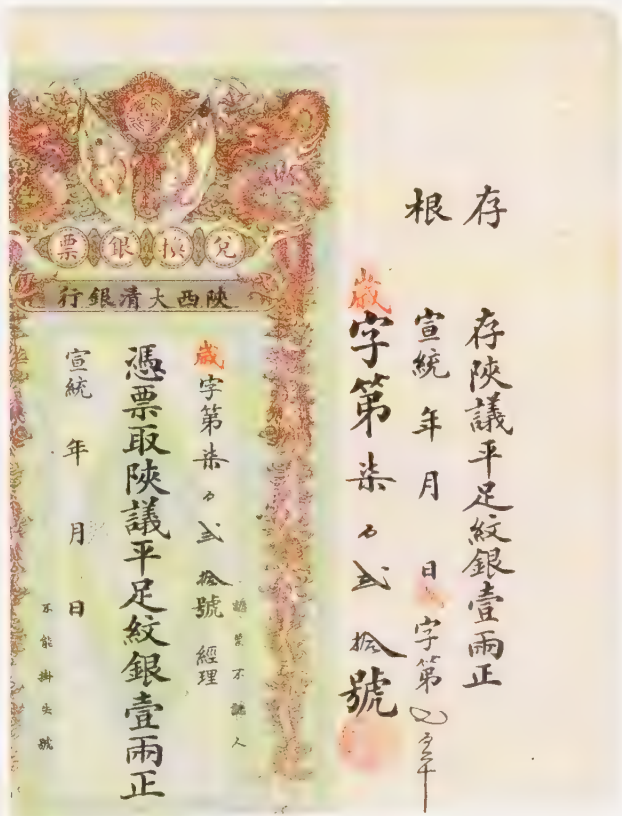 存
根
存陝議平足紋銀壹兩正
宣統 年 月 日
字第
歲字第柒百貳拾號
兌換銀票
陝西大清銀行
認票不認人
歲字第柒百貳拾號 經理
憑票取陝議平足紋銀壹兩正
宣統 年 月 日
不能掛失號